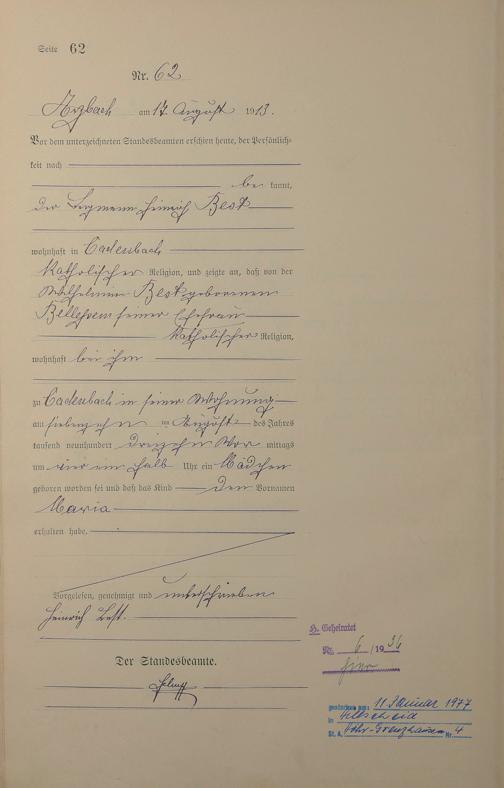 Seite 62
Nr. 62
Arzbach am 17. August 1913.
Vor dem unterzeichneten Standesbeamten erschien heute, der Persönlich-
keit nach
be kannt,
der Bergmann Heinrich Best
wohnhaft in Cadenbach
katholischer Religion, und zeigte an, daß von der
Wilhelmine Best geborenen
seiner Ehefrau
katholischer Religion,
wohnhaft bei ihm
zu Cadenbach in seiner Wohnung
am siebenzehn im August des Jahres
tausend neunhundert dreizehn Vor mittags
um vier ein halb Uhr ein Mädchen
geboren worden sei und daß das Kind den Vornamen
Maria
erhalten habe.
Vorgelesen, genehmigt und unterschrieben
Heinrich Best.
Der Standesbeamte.
H. Geheiratet
Nr. 6 / 1936
hier
gestorben am: 11 Januar 1977
in Hillscheid
St. A. Höhr-Grenzhausen Nr. 4